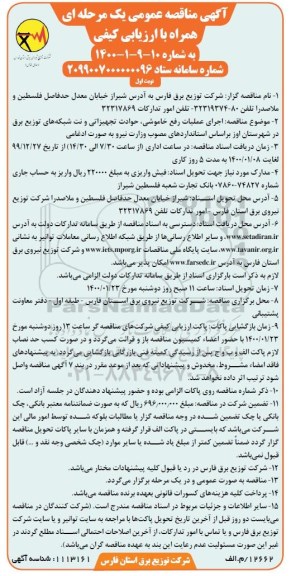 آگهی مناقصه عمومی یک مرحله ای
همراه با ارزیابی کیفی
به شماره ۱۰-۹-۱-۱۴۰۰
شماره سامانه ستاد ۲۰۹۹۰۰۷۰۰۰۰۰۰۰۹۶
نوبت اول
۱- نام مناقصه گزار: شرکت توزیع برق فارس به آدرس شیراز خیابان معدل حدفاصل فلسطین و
ملاصدرا تلفن ۸۰-۳۲۳۱۹۳۷۴ تلفن امور تدارکات ۳۲۳۱۷۸۶۹
۲- موضوع مناقصه: اجرای عملیات رفع خاموشی، حوادث تجهیزاتی و نت شبکه‌های توزیع برق
در شهرستان اوز براساس استانداردهای مصوب وزارت نیرو به صورت ادغامی
۳- زمان دریافت اسناد مناقصه: در ساعت اداری (از ساعت ۷:۳۰ الی ۱۴:۳۰) از تاریخ ۹۹/۱۲/۲۷
لغایت ۱۴۰۰/۰۱/۰۸ به مدت ۵ روز کاری
۴- مدارک مورد نیاز جهت تحویل اسناد: فیش واریزی به مبلغ ۲۲۰۰۰۰ ریال واریز به حساب جاری
شماره ۰۷۸۶۰۰۷۴۸۲۷ بانک تجارت شعبه فلسطین شیراز
۵- آدرس محل تحویل اسناد: شیراز خیابان معدل حدفاصل فلسطین و ملاصدرا شرکت توزیع
نیروی برق استان فارس - امور تدارکات تلفن ۳۲۳۱۷۸۶۹
۶- آدرس محل دریافت اسناد: دسترسی به اسناد مناقصه از طریق سامانه تدارکات دولت به آدرس
www.setadiran.ir و سایر اطلاع رسانی ها از طریق شبکه اطلاع رسانی معاملات توانیر به نشانی
www.tavanir.org.ir سایت پایگاه ملی مناقصات www.iets.mporg.ir و شرکت توزیع نیروی برق
استان فارس به آدرس www.farsedc.ir امکان پذیر می‌باشد.
لازم به ذکر است بارگزاری اسناد از طریق سامانه تدارکات دولت الزامی می‌باشد.
۷- زمان تحویل اسناد: ساعت ۱۱ صبح روز دوشنبه مورخ ۱۴۰۰/۰۱/۲۳
۸- محل برگزاری مناقصه: شرکت توزیع نیروی برق استان فارس - طبقه اول - دفتر معاونت
پشتیبانی
۹- زمان بازگشایی پاکات: پاکت ارزیابی کیفی شرکت‌های مناقصه گر ساعت ۱۲ روز دوشنبه مورخ
۱۴۰۰/۰۱/۲۳ با حضور اعضاء کمیسیون مناقصه باز و قرائت می‌گردد و در صورت کسب حد نصاب
لازم پاکت الف و ب و ج پس از رسیدگی کمیته فنی بازرگانی بازگشایی می‌گردد. به پیشنهادهای
فاقد امضاء، مشروط، مخدوش و پیشنهاداتی که بعد از موعد مقرر در بند ۷ آگهی مناقصه واصل
شود ترتیب اثر داده نخواهد شد.
۱۰- ذکر شماره مناقصه روی پاکات الزامی بوده و حضور پیشنهاد دهندگان در جلسه آزاد است.
۱۱- تضمین شرکت در مناقصه: مبلغ ۶۹۶,۰۰۰,۰۰۰ ریال که به صورت ضمانتنامه معتبر بانکی، چک
بانکی یا چک تضمین شده در وجه مناقصه گزار یا مطالبات بلوکه شده توسط امور مالی این
شرکت می‌باشد که بایستی در پاکت الف قرار گرفته و همزمان با سایر پاکات تحویل مناقصه
گزار گردد ضمناً تضمین کمتر از مبلغ یاد شده یا سایر موارد (چک شخصی وجه نقد و ...) قابل
قبول نمی‌باشد.
۱۲- شرکت توزیع برق فارس در رد یا قبول کلیه پیشنهادات مختار می‌باشد.
۱۳- مناقصه به صورت عمومی و در یک مرحله برگزار می‌گردد.
۱۴- پرداخت کلیه هزینه‌های کسورات قانونی بعهده برنده مناقصه می‌باشد.
۱۵- سایر اطلاعات و جزئیات مربوط در اسناد مناقصه مندرج است. (شرکت کنندگان در مناقصه
می‌بایست دو روز قبل از آخرین تاریخ تحویل پاکت‌ها با مراجعه به سایت توانیر و یا سایت شرکت
توزیع برق فارس و یا تماس با امور تدارکات، از آخرین اصلاحات احتمالی اسناد مطلع گردند در
غیر این صورت مسئولیت عدم رعایت این بند به عهده مناقصه گران می‌باشد).
۱۲۶۶۲/م.الف
شرکت توزیع برق استان فارس
شناسه آگهی: ۱۱۱۳۱۶۱